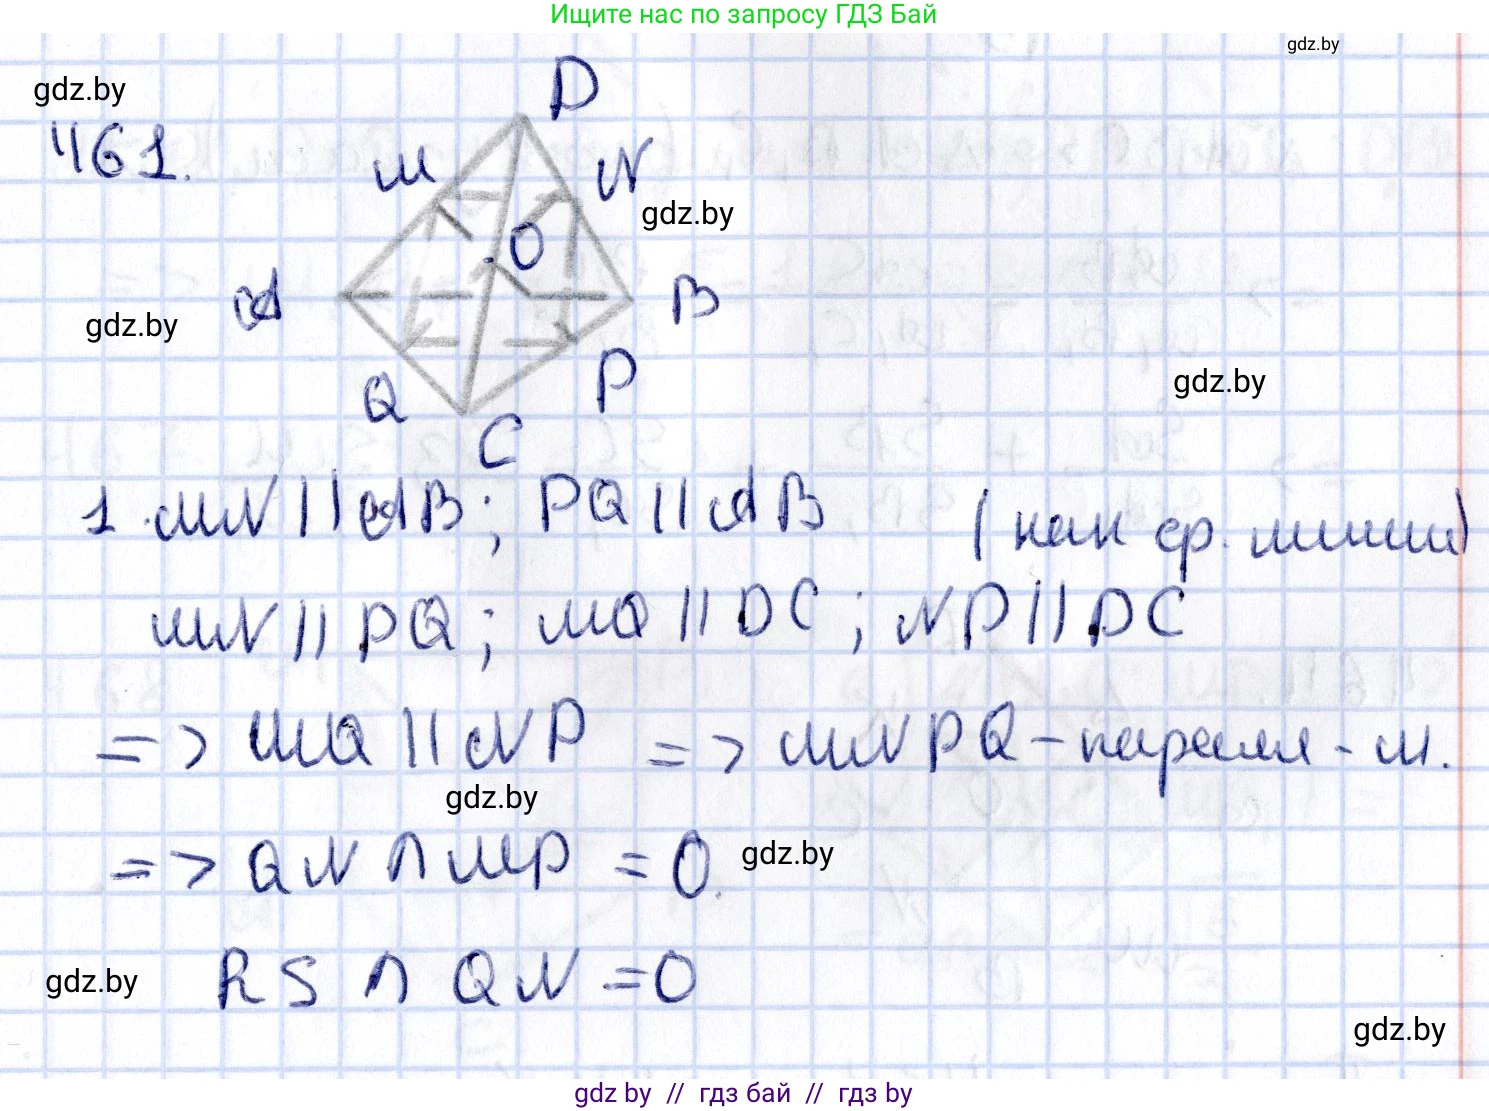 Ищите нас по запросу ГДЗ Бай
gdz.by
gdz.by
461.
D
M
N
gdz.by
O
A
B
gdz.by
Q
P
gdz.by
C
1. MN || AB; PQ || AB (как ср. линии)
MN || PQ; MQ || DC; NP || DC
=> MQ || NP => MNPQ - паралл-м.
gdz.by
=> QN ∩ MP = O.
gdz.by
RS ∩ QN = O
gdz.by
gdz.by
gdz by // гдз бай // гдз by